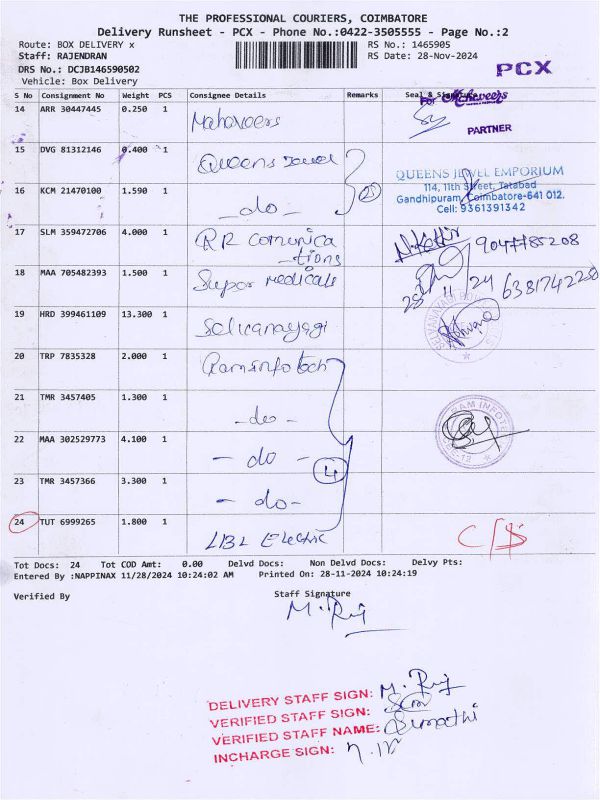 THE PROFESSIONAL COURIERS, COIMBATORE
Delivery Runsheet - PCX - Phone No.:0422-3505555 - Page No.:2
Route: BOX DELIVERY x RS No.: 1465905
Staff: RAJENDRAN RS Date: 28-Nov-2024
DRS No.: DCJB146590502 PCX
Vehicle: Box Delivery
S No Consignment No Weight PCS Consignee Details Remarks Seal & Signature
For Mahaveers
14 ARR 30447445 0.250 1 Mahaveers
PARTNER
15 DVG 81312146 0.400 1 Queens Jewel
QUEENS JEWEL EMPORIUM
114, 11th Street, Tatabad
16 KCM 21470100 1.590 1 -do-
Gandhipuram, Coimbatore-641 012.
Cell: 9361391342
17 SLM 359472706 4.000 1 RR Comunica
-tions 9047785208
18 MAA 705482393 1.500 1 Super medicals
28 11 24 6381742258
19 HRD 399461109 13.300 1 Selvanayagi
20 TRP 7835328 2.000 1 Raminfotech
21 TMR 3457405 1.300 1 -do-
22 MAA 302529773 4.100 1 -do- 4
23 TMR 3457366 3.300 1 -do-
24 TUT 6999265 1.800 1 LBL Electric
Tot Docs: 24 Tot COD Amt: 0.00 Delvd Docs: Non Delvd Docs: Delvy Pts:
Entered By :NAPPINAX 11/28/2024 10:24:02 AM Printed On: 28-11-2024 10:24:19
Verified By Staff Signature
M. Raj
DELIVERY STAFF SIGN: M. Raj
VERIFIED STAFF SIGN:
VERIFIED STAFF NAME: Sumathi
INCHARGE SIGN: